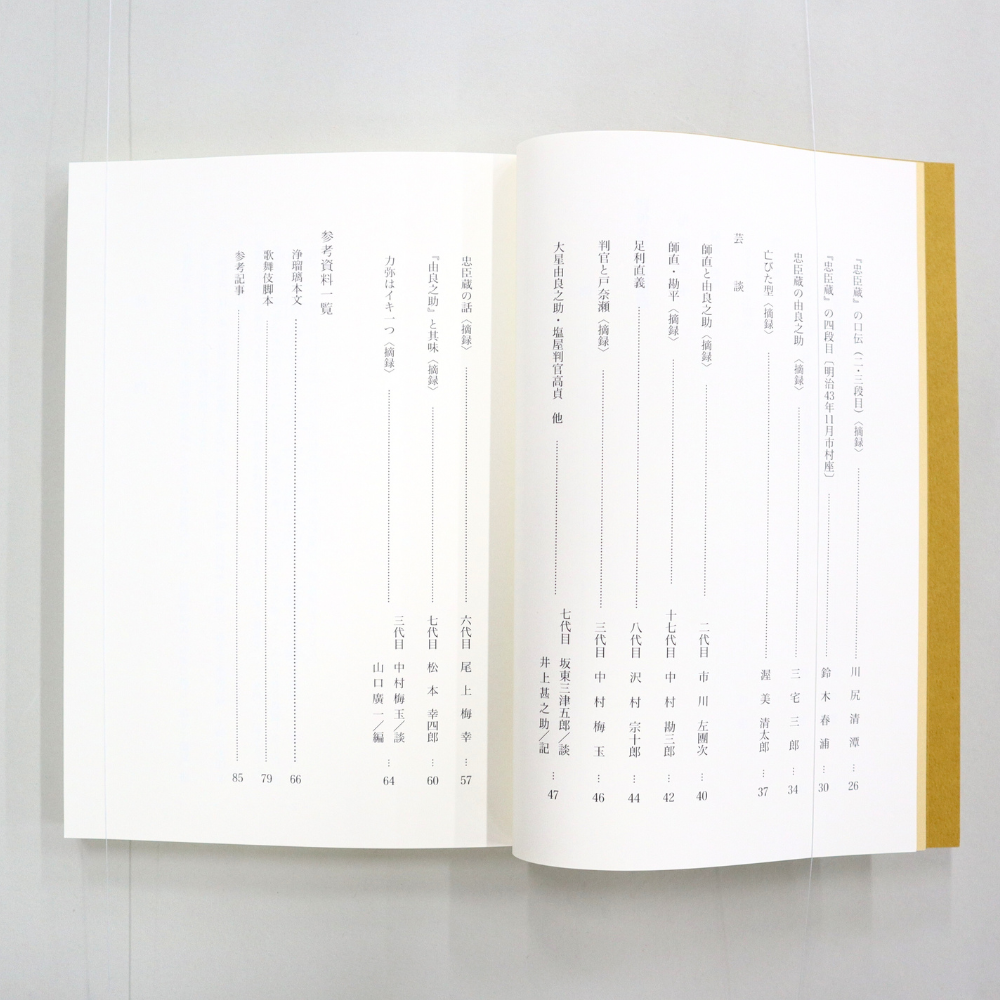 『忠臣蔵』の口伝(二・三段目)〈摘録〉……川尻清潭…26
『忠臣蔵』の四段目〔明治43年11月市村座〕……鈴木春浦…30
忠臣蔵の由良之助〈摘録〉……三宅三郎…34
亡びた型〈摘録〉……渥美清太郎…37
芸談
師直と由良之助〈摘録〉……二代目 市川左團次…40
師直・勘平〈摘録〉……十七代目 中村勘三郎…42
足利直義……八代目 沢村宗十郎…44
判官と戸奈瀬〈摘録〉……三代目 中村梅玉…46
大星由良之助・塩屋判官高貞 他……七代目 坂東三津五郎/談
井上甚之助/記…47
忠臣蔵の話〈摘録〉……六代目 尾上梅幸…57
『由良之助』と其味〈摘録〉……七代目 松本幸四郎…60
力弥はイキ一つ〈摘録〉……三代目 中村梅玉/談
山口廣一/編…64
参考資料一覧
浄瑠璃本文……66
歌舞伎脚本……79
参考記事……85